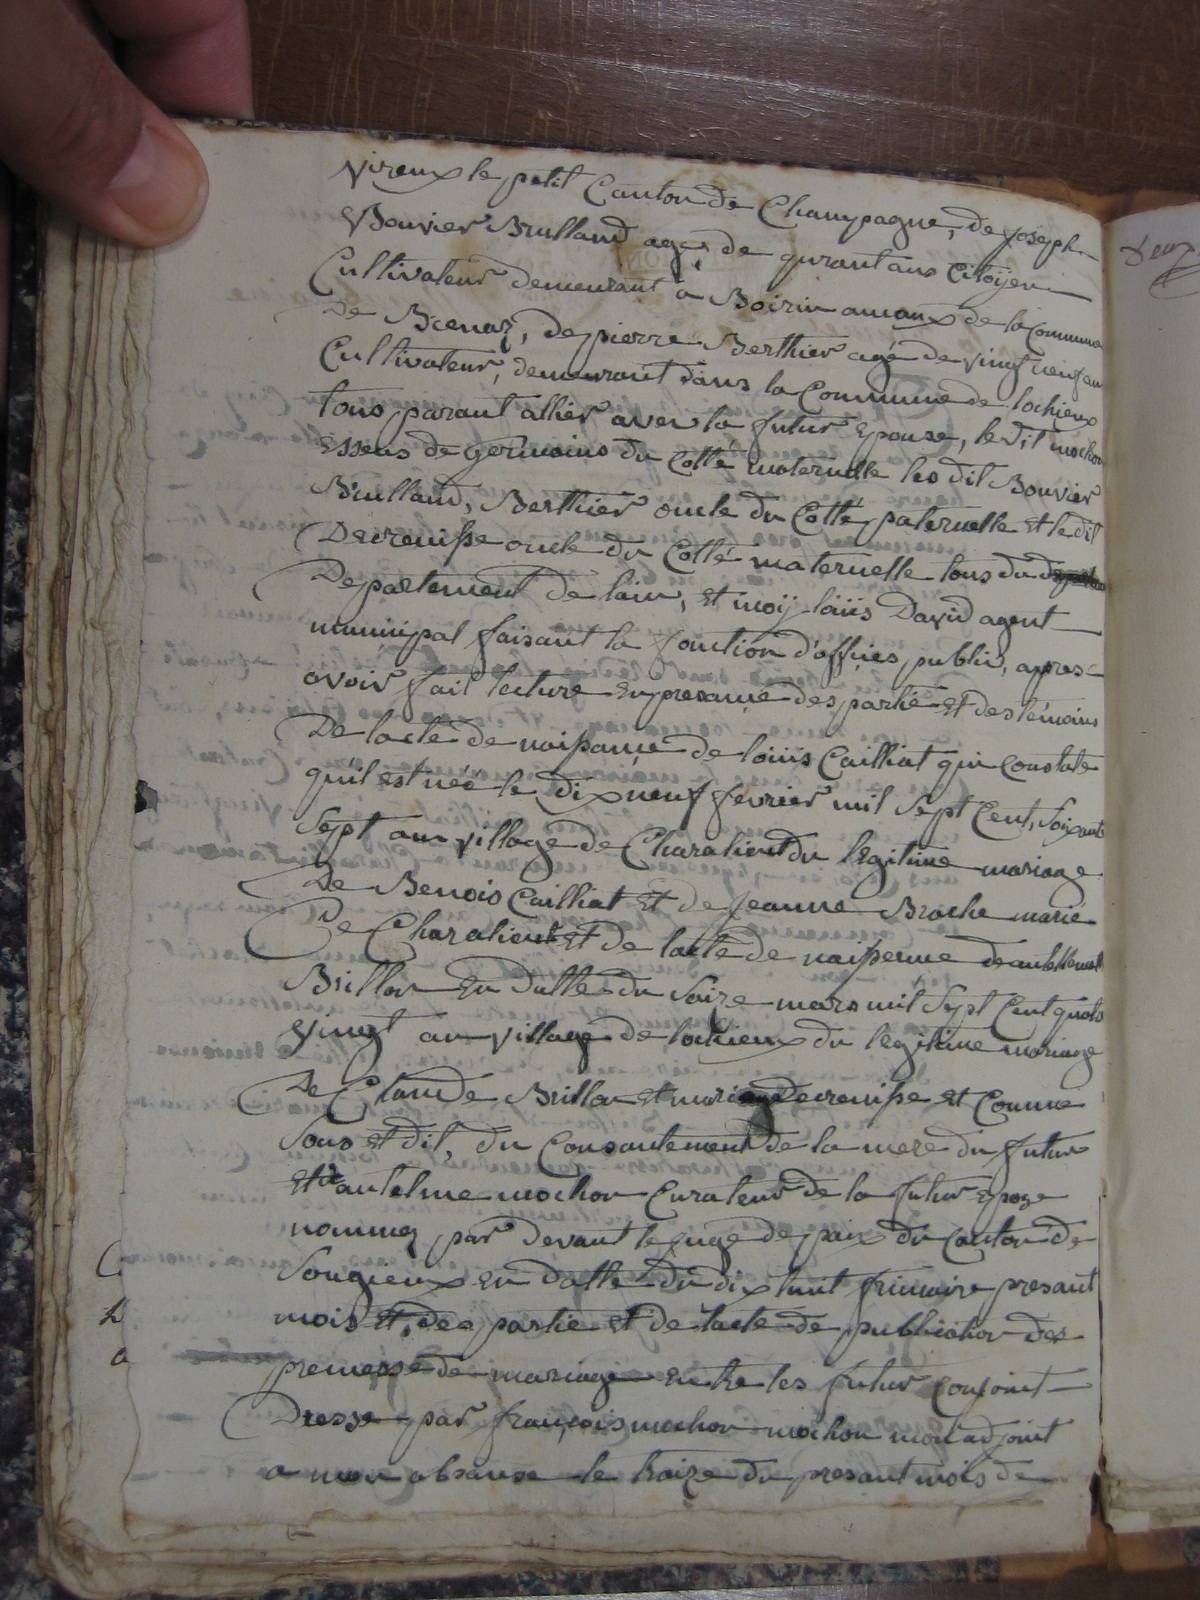 vireux le petit Canton de Champagne, de joseph
Bouvier Brulland agé de qurant ans Citoÿen
Cultivateur demeurant a Boirin amaux de la Commune
De Bienaz, de pierre Berthier agé de vingt neuf an
Cultivateur, demeurant dans la Commune de lochieux
tous parant allier avec la futur Epouze, le dit mochon
Essens de germains du Collé maternelle les dit Bouvier
Brulland, Berthier oncle du Collé paternelle et le dit
Decrenisse oncle du Collé maternelle tous du
Departement de lain, et moÿ loüis David agent
municipal faisant la fonction d'officies public, apres
avoir fait lecture en presance des partie et des témoins
De lacte de naissance de loüis Cailliat qui Constate
quil est née le dix neuf fevrier mil sept Cent, soixante
Sept au village de Charalieut du legitime mariage
De Benois Cailliat et de jeanne Broche marié
De Charalieut et de lacte de naissenne
Brillon en datte du saize mars mil sept Cent quats
vingt au village de lochieux du legitime mariage
De Claude Brillon et marie Decrenisse et Comme
sous et dit, du Consantement de la mere du futur
et d'antelme mochon Curateur de la futur Epoze
nommez par devant le juge de paix du Canton de
Songieux en datte du dix huit frimaire presant
mois et des partie et de lacte de publication des
premesse de mariage entre les futur conjoint
Dresse par françois mochon mochon mon adjoint
a mon absanse le traize du presant mois de
C
h
a